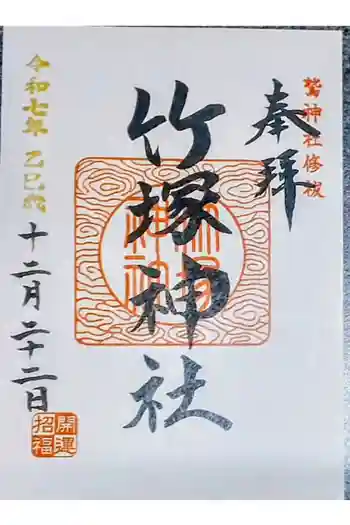 鷲神社修祓
奉拝
竹塚神社
竹塚神社
令和七年 乙巳歳
十二月二十二日
開運招福